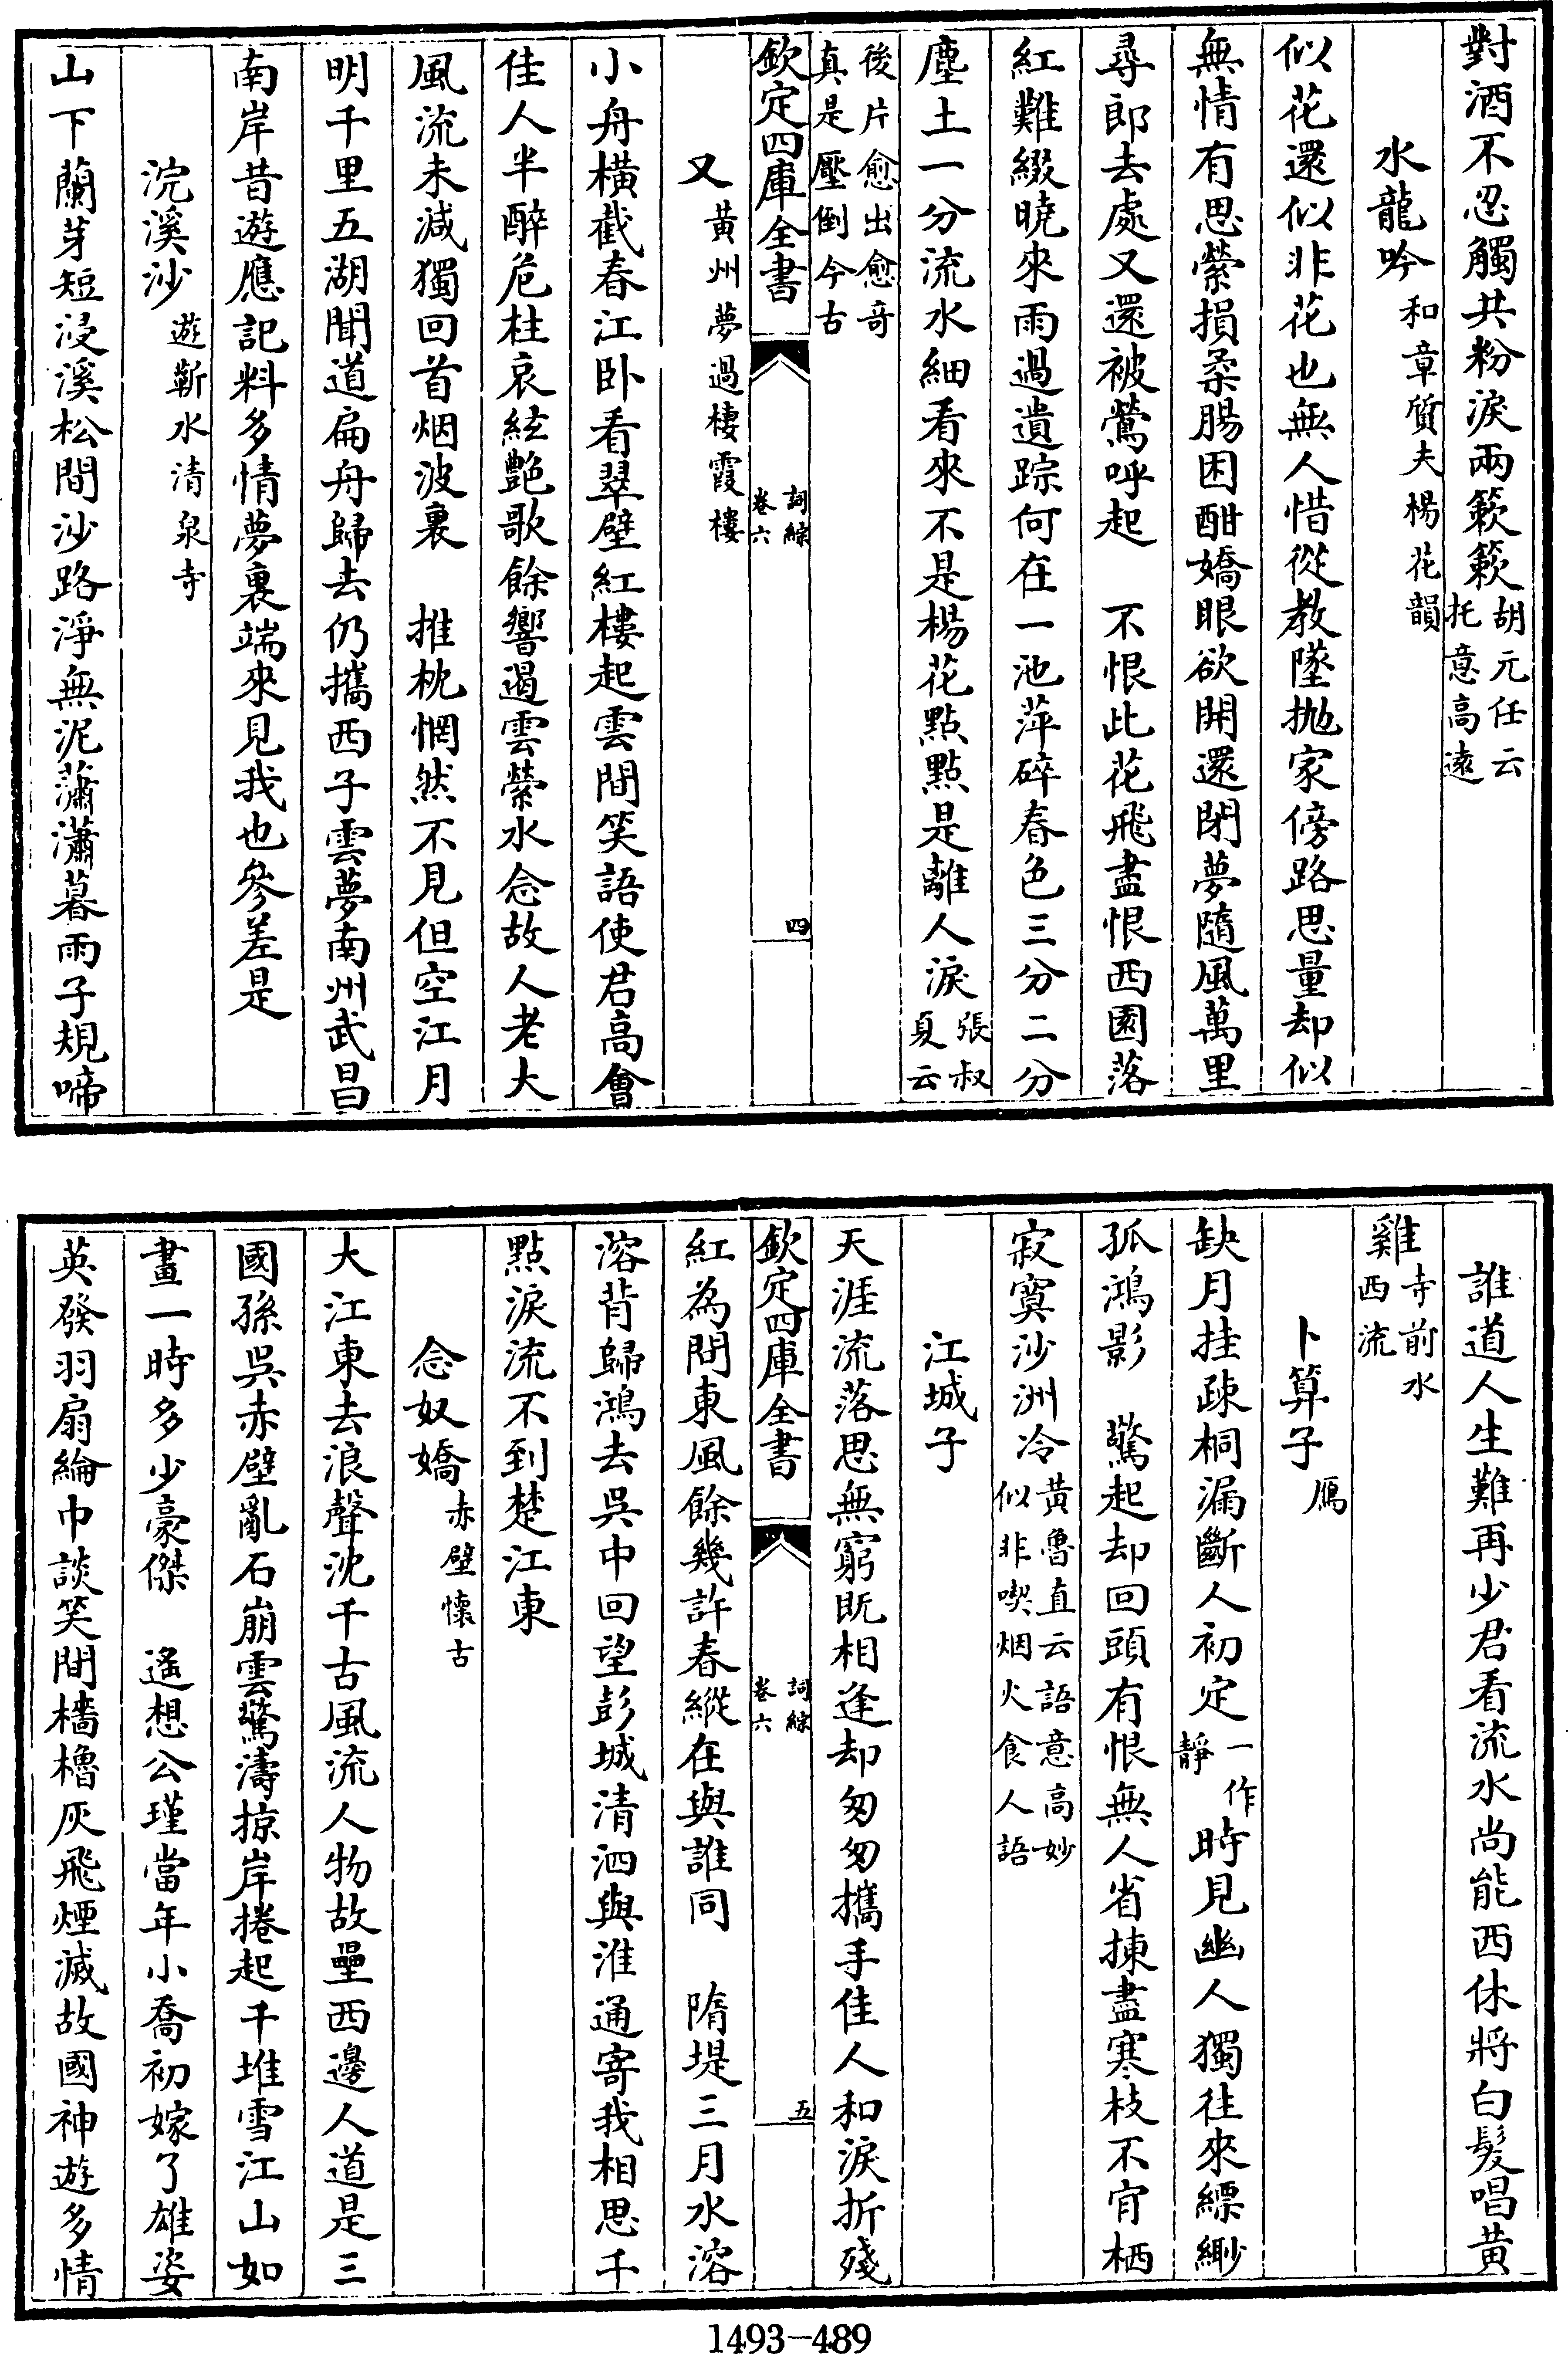 對酒不忍觸共粉淚兩簌簌胡元任云托意高遠
水龍吟和章質夫楊花韻
似花還似非花也無人惜從教墜抛家傍路思量却似
無情有思縈損柔腸困酣嬌眼欲開還閉夢隨風萬里
尋郎去處又還被鶯呼起　不恨此花飛盡恨西園落
紅難綴曉來雨過遺踪何在一池萍碎春色三分二分
塵土一分流水細看來不是楊花點點是離人淚張叔夏云
後片愈出愈奇真是壓倒今古
欽定四庫全書　詞綜卷六　四
又黃州夢過棲霞樓
小舟橫截春江卧看翠壁紅樓起雲間笑語使君高會
佳人半醉危柱哀絃艷歌餘響遏雲縈水念故人老大
風流未減獨回首烟波裏　推枕惘然不見但空江月
明千里五湖聞道扁舟歸去仍攜西子雲夢南州武昌
南岸昔遊應記料多情夢裏端來見我也參差是
浣溪沙遊蘄水清泉寺
山下蘭芽短浸溪松間沙路淨無泥蕭瀟暮雨子規啼
誰道人生難再少君看流水尚能西休將白髮唱黃
雞寺前水西流
卜算子鴈
缺月挂疎桐漏斷人初定一作靜時見幽人獨往來縹緲
孤鴻影　驚起却回頭有恨無人省揀盡寒枝不肯栖
寂寞沙洲冷黃魯直云語意高妙似非喫烟火食人語
江城子
天涯流落思無窮既相逢却匆匆攜手佳人和淚折殘
欽定四庫全書　詞綜卷六　五
紅為問東風餘幾許春縱在與誰同　隋堤三月水溶
溶背歸鴻去吳中回望彭城清泗與淮通寄我相思千
點淚流不到楚江東
念奴嬌赤壁懷古
大江東去浪聲沈千古風流人物故壘西邊人道是三
國孫吳赤壁亂石崩雲驚濤掠岸捲起千堆雪江山如
畫一時多少豪傑　遙想公瑾當年小喬初嫁了雄姿
英發羽扇綸巾談笑間檣櫓灰飛煙滅故國神遊多情
1493-489